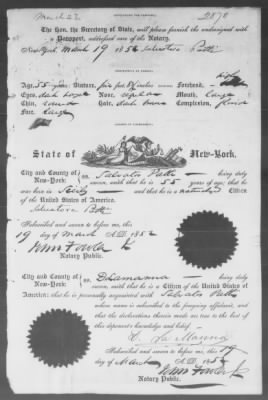 March 22
2878
The Hon. the Secretary of State, will please furnish the undersigned with
a Passport, addressed care of the Notary.
New-York, March 19 1852 Salvatore Patti
Age, 55 years; Stature, five feet inches Forehead, high
Eyes, dark Nose, Mouth, large
Chin, round Hair, dark brown Complexion, florid
Face, large
State of New-York.
City and County of New-York: } ss. Salvator Patti being duly
sworn, saith that he is 55 years of age; that he
was born in Sicily and is a naturalized Citizen
of the United States of America.
Salvatore Patti
Subscribed and sworn to before me, this
19 day of March A.D. 1852
John Fowler Jr
Notary Public.
City and County of New-York: } ss. being duly
sworn, saith that he is a Citizen of the United States of
America: that he is personally acquainted with Salvator Patti
whose name is subscribed to the foregoing affidavit, and
that the declarations therein made are true to the best of
this deponent's knowledge and belief.
Subscribed and sworn to before me, this 19
day of March A.D. 1852
John Fowler Jr
Notary Public.